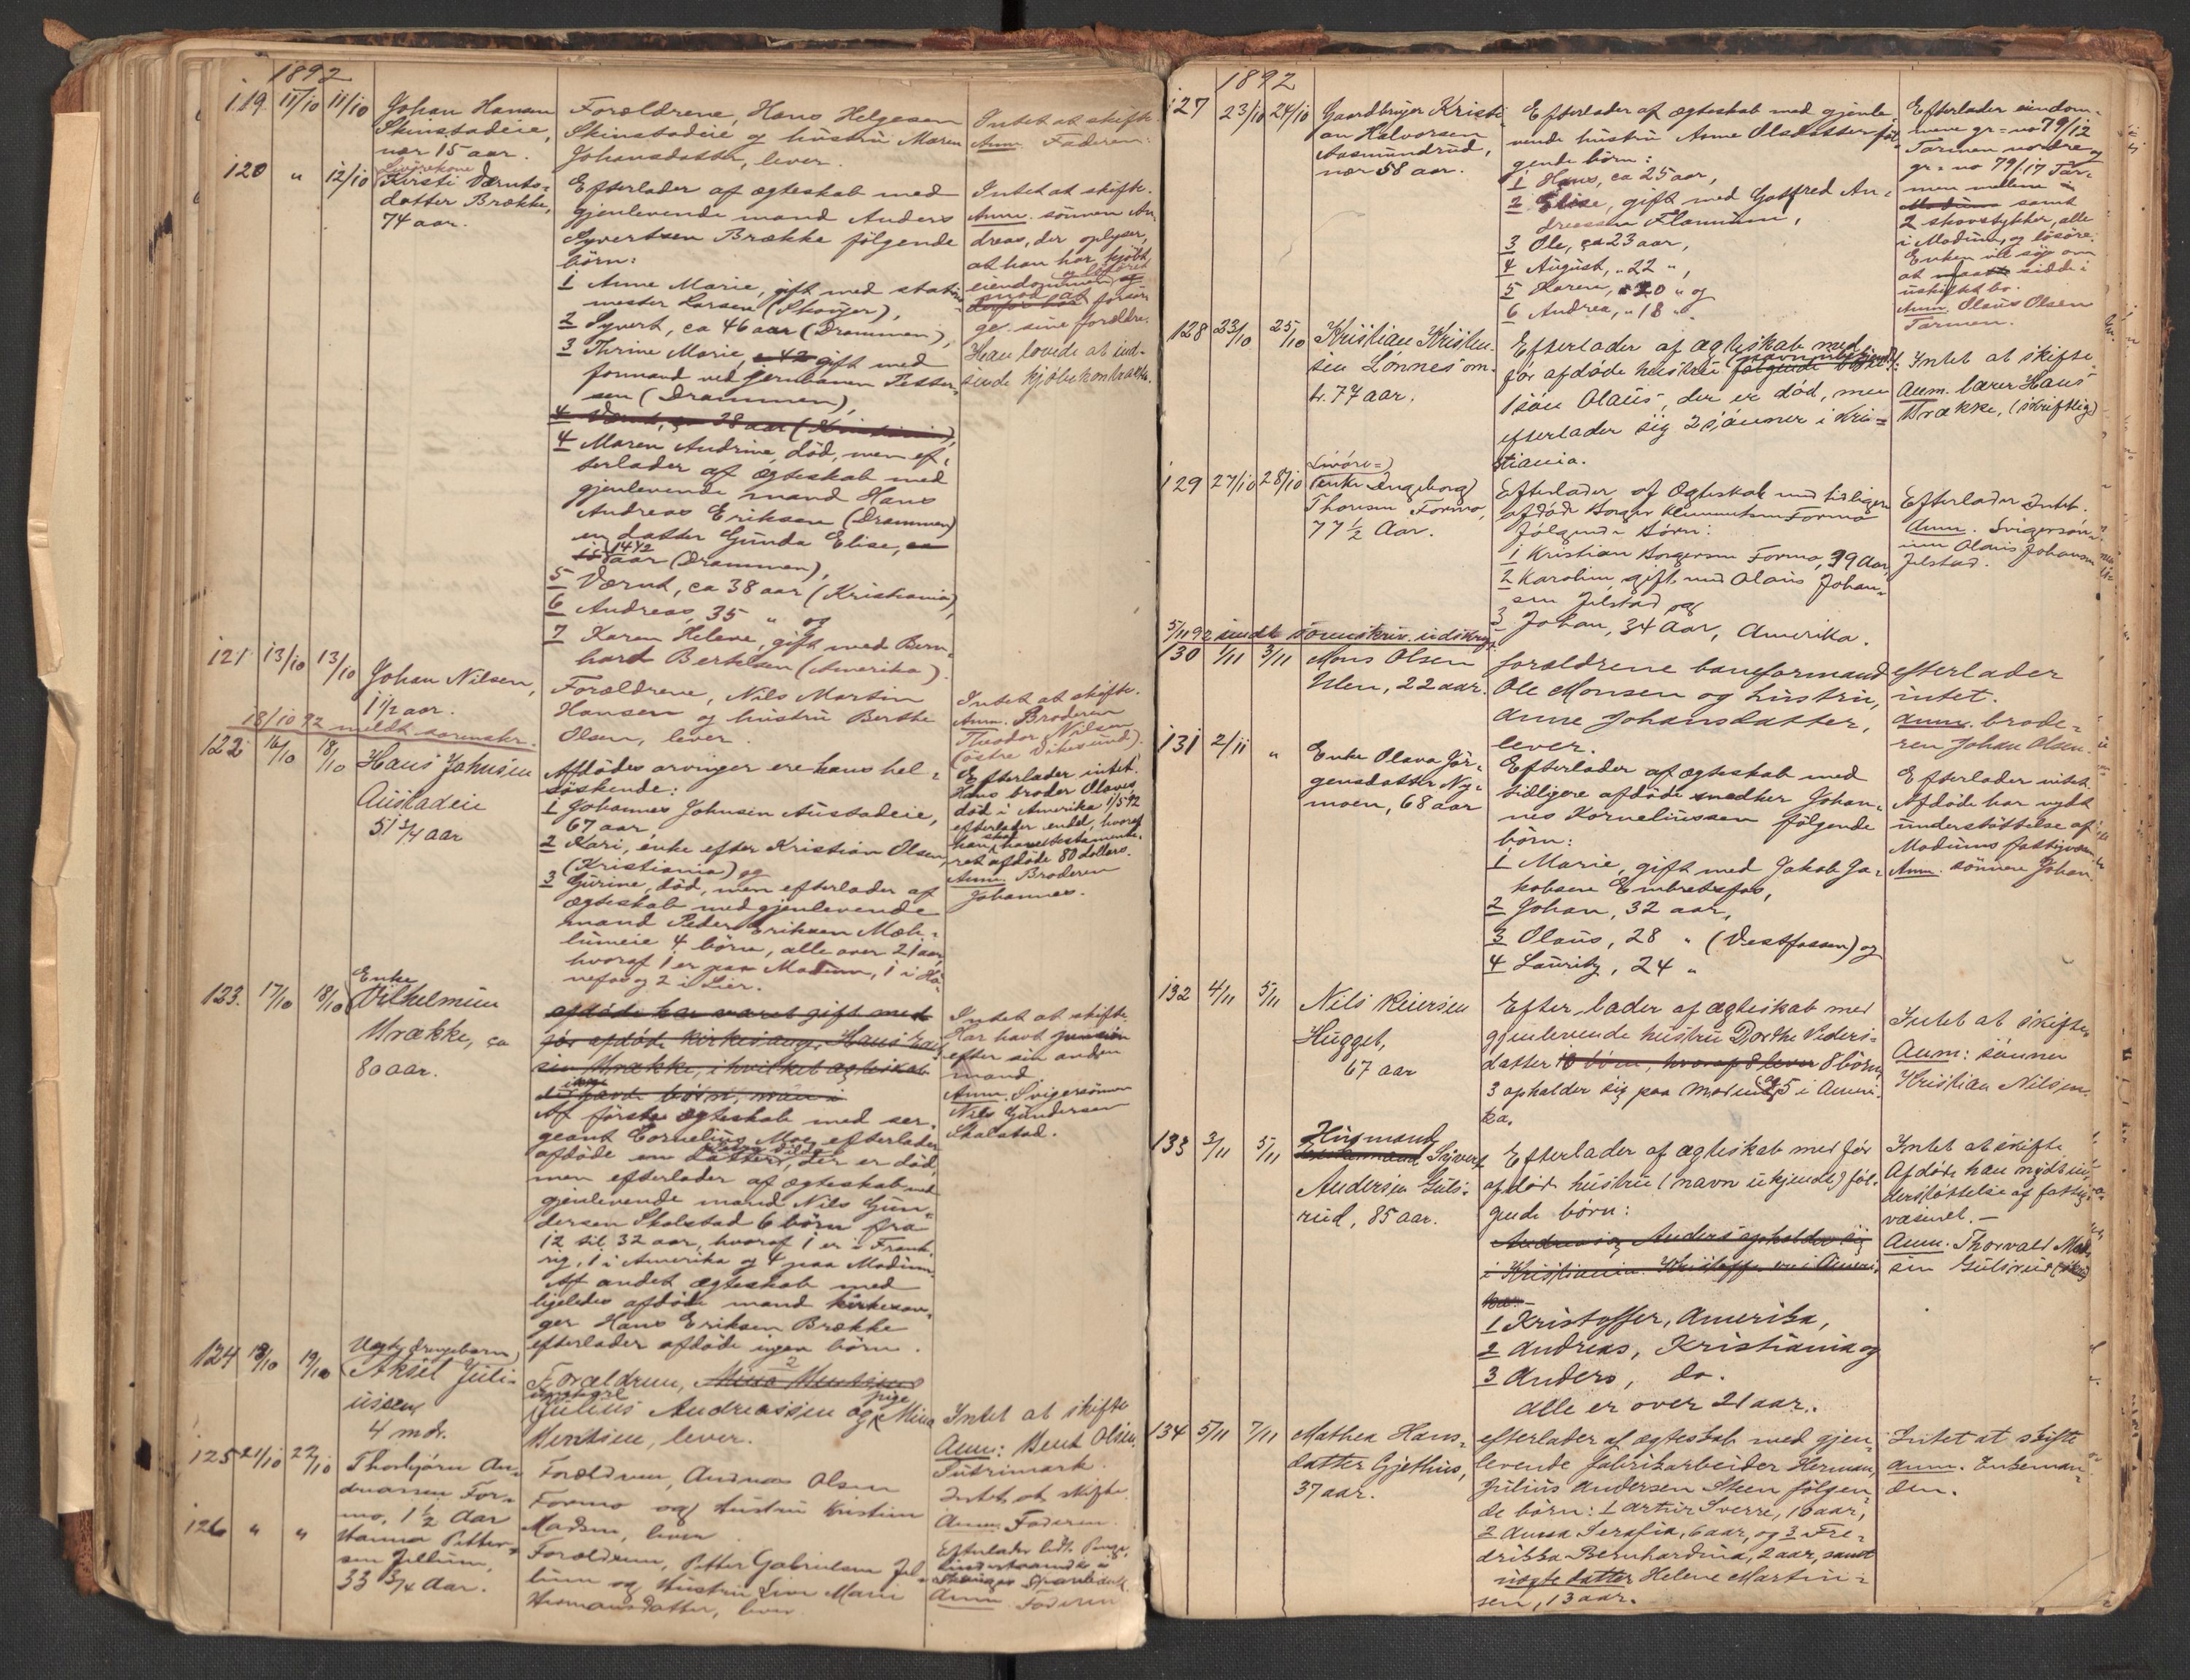 1892
119 11/10 11/10 Johan Hansen
Skinstadeie,
nær 15 aar.
Forældrene, Hans Helgesen
Skinstadeie og hustru Maren
Johansdatter, lever.
Intet at skifte.
Anm. Faderen.
120 " 12/10 Livörekone
Kirsti Værnts=
datter Brække,
74 aar.
Efterlader af ægteskab med
gjenlevende mand Anders
Syvertsen Brække følgende
börn:
1 Anne Marie, gift med stations=
mester Larsen (Skoger),
2 Syvert, ca 46 aar (Drammen),
3 Thrine Marie, gift med
formand ved jernbanen Petter-
sen (Drammen),
4 Værnt, ca 38 aar (Kristiania),
4 Maren Andrine, död, men ef-
terlader af ægteskab med
gjenlevende mand Hans
Andreas Eriksen (Drammen)
en datter Gunda Elise, ca
14 1/2
aar (Drammen),
5 Værnt, ca 38 aar (Kristiania),
6 Andreas, 35 " og
7 Karen Helene, gift med Bern-
hard Bertelsen (Amerika).
Intet at skifte.
Anm. sönnen An-
dreas, der oplyser,
at han har kjöbt
eiendommen og löförel
mod at forsör-
ge sine forældre.
Han lovede at ind-
sende kjöbekontrakten.
121 13/10 13/10 Johan Nilsen,
1 1/2 aar.
Forældrene, Nils Martin
Hansen og hustru Berthe
Olsen, lever.
Intet at skifte.
Anm. Broderen
Theodor Nilsen
(östre Vikesund).
18/10 92 meldt sorenskr.
122 16/10 18/10 Hans Johnsen
Austadeie
51 3/4 aar
Afdödes arvinger ere hans hel=
söskende:
1 Johannes Johnsen Austadeie,
67 aar,
2 Kari, enke efter Kristian Olsen,
(Kristiania) og
3 Gurine, död, men efterlader af
ægteskab med gjenlevende
mand Peder Eriksen Mæh-
lumeie 4 börn, alle over 21 aar,
hvoraf 1 er paa Modum, 1 i Hö-
nefos og 2 i Lier.
Efterlader intet.
Hans broder Olaves
död i Amerika 1/5 92
efterlader endel, hvoraf
han skal have testamente-
ret afdöde 80 dollars.
Anm. Broderen
Johannes.
123. 17/10 18/10 Enke
Vilhelmine
Brække, ca
80 aar.
afdöde har været gift med
för afdöde kirkesang. Hans Erik
sen Brække, i hvilket ægteskab
ingen
de havde börn, men i
Af förste ægteskab med ser-
geant Cornelius Moe efterlader
afdöde en datter, der er död,
men efterlader af ægteskab med
gjenlevende mand Nils Gun-
dersen Skalstad 6 börn fra
12 til 32 aar, hvoraf 1 er i Frank-
rig, 1 i Amerika og 4 paa Modum.
Af andet ægteskab med
ligeledes afdöde mand kirkesan-
ger Hans Eriksen Brække
efterlader afdöde ingen börn.
Intet at skifte.
Har havt pension
efter sin anden
mand
Anm. Svigersönnen
Nils Gundersen
Skalstad.
124 18/10 19/10 Uægte drengebarn
Aksel Juli-
ussen
4 mdr.
Forældrene,
ungkarl
Julius Andreassen og pige Mina
Bentsen, lever.
Intet at skifte
Anm: Bent Olsen,
125 21/10 22/10 Thorbjörn An-
dreassen For-
mo, 1 1/2 Aar
Forældrene, Andreas Olsen
Formo og hustru Kristine
Madsen, lever
Intet at skifte.
Anm. Faderen.
126 " " Hanna Petter-
sen Jellum,
33 3/4 Aar.
Forældrene, Petter Gabrielsen Jel-
lum og Hustru Marie
Hermansdatter, lever.
Efterlader lidt Penge,
Anm Faderen
1892
127 23/10 24/10 Gaardbruger Kristi-
an Halvorsen
Aasmundrud,
nær 58 aar.
Efterlader af ægteskab med gjenle-
vende hustru Anne Olsdatter föl-
gende börn:
1 Hans, ca 25 aar,
2 Elise, gift med Gotfred An-
dreassen Flannum,
3 Ole, ca 23 aar,
4 August, " 22 ",
5 Karen, " 20 " og
6 Andrea, " 18 ".
Efterlader eiendom-
mene gr=no 79/12
Tarmen nordre og
gr=no 79/17 Tar-
men mellem i
Modum samt
2 skovstykker, alle
i Modum, og lösöre.
Enken vil söge om
at maatte sidde i
uskiftet bo.
Anm. Olaus Olsen
Tarmen.
128 23/10 25/10 Kristian Kristen-
sen Lönnes om-
tr. 77 aar.
Efterlader af ægteskab med
för afdöde hustru
1 sön Olaus, der er död, men
efterlader sig 2 sönner i Kri=
stiania.
Intet at skifte
Anm. lærer Hans
Brække, (skriftlig)
129 27/10 28/10 Livöre=)
enke Ingeborg
Thoresen Formo,
77 1/2 Aar.
Efterlader af Ægteskab med tidligere
afdöde Borger Klemmetsen Formo
fölgende Börn:
1 Kristian Borgersen Formo, 39 Aar,
2 Karoline, gift med Olaus Johan-
sen Jelstad og
3 Johan, 34 Aar, Amerika.
Efterlader Intet.
Anm. Svigersön-
nen Olaus Johansen
Jelstad.
5/11 92 sendt sorenskriv. udskrift
130 1/11 3/11 Mons Olsen
Ulen, 22 aar.
forældrene baneformand
Ole Monsen og hustru,
Anne Johansdatter,
lever.
efterlader
intet.
anm. brode=
ren Johan Olsen.
131 2/11 " Enke Olava Jör-
gensdatter Ny-
moen, 68 aar
Efterlader af ægteskab med
tidligere afdöde snedker Johan-
nes Korneliussen fölgende
börn:
1 Marie, gift med Jakob Ja-
kobsen Embretsfos,
2 Johan, 32 aar,
3 Olaus, 28 " (Vestfossen) og
4 Lauritz, 24 "
Efterlader intet.
Afdöde har nydt
understöttelse af
Modums fattigvæsen.
Anm. sönnen Johan.
132 4/11 5/11 Nils Reiersen
Hugget,
67 aar
Efterlader af ægteskab med
gjenlevende hustru Dorthe Peders-
datter 10 börn, hvoraf 8 lever 8 börn,
3 opholder sig paa Modum og 5 i Ameri-
ka.
Intet at skifte
Anm: sönnen
Kristian Nilsen.
133 3/11 5/11 Husmand
Syvert
Andersen Guls-
rud, 85 aar.
Efterlader af ægteskab med för
afdöde hustru (navn ukjendt) föl-
gende börn:
Andreas og Anders opholder sig
i Kristiania. Kristoffer er i Ameri-
ka.
1 Kristoffer, Amerika,
2 Andreas, Kristiania og
3 Anders, do.
alle er over 21 aar.
Intet at skifte
Afdöde han nydt un-
derstöttelse af fattig-
væsenet.-
Anm. Thorvald Mad-
sen Gulsrud
134 5/11 7/11 Mathea Hans-
datter Gjethus,
37 aar.
efterlader af ægteskab med gjen-
levende fabrikarbeider Herman
Julius Andersen Steen fölgen-
de börn: 1 Artur Sverre, 10 aar,
2 Anna Serafia, 6 aar, og 3 Fre-
drikka Bernhardina, 2 aar, samt
uægte datter Helene Martin-
sen, 13 aar.
Intet at skifte
anm. Enkeman-
den.